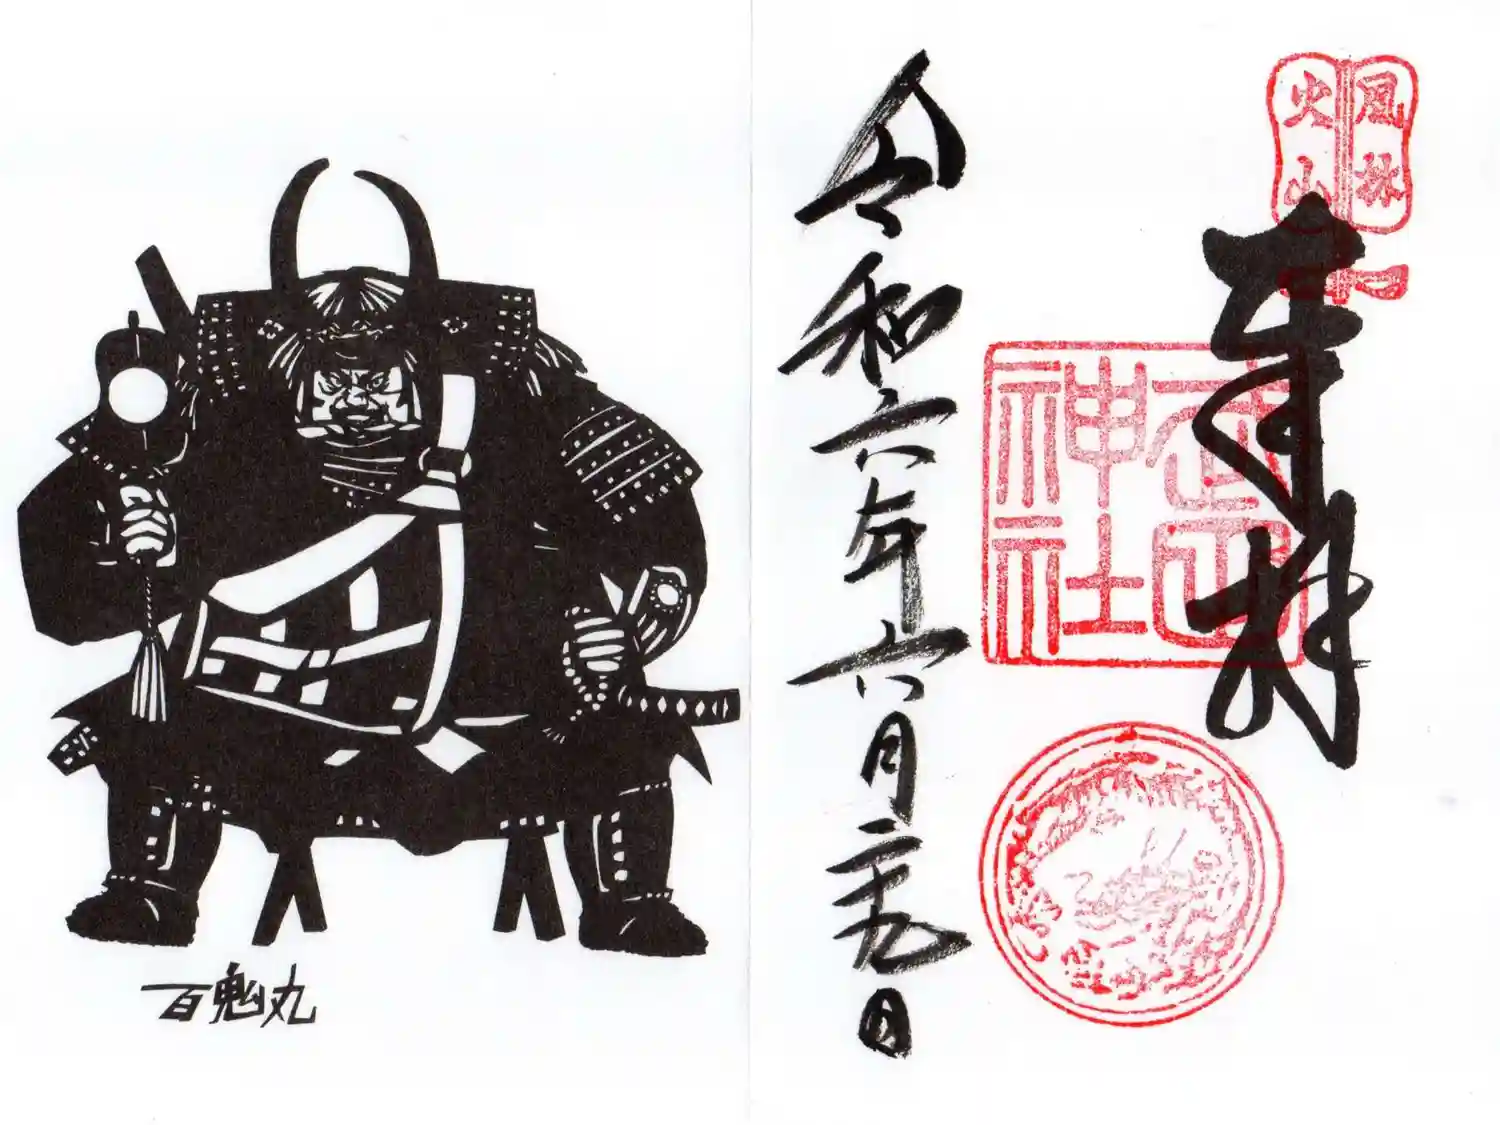 風林
火山
奉拝
武田
神社
令和六年六月二十九日
百鬼丸